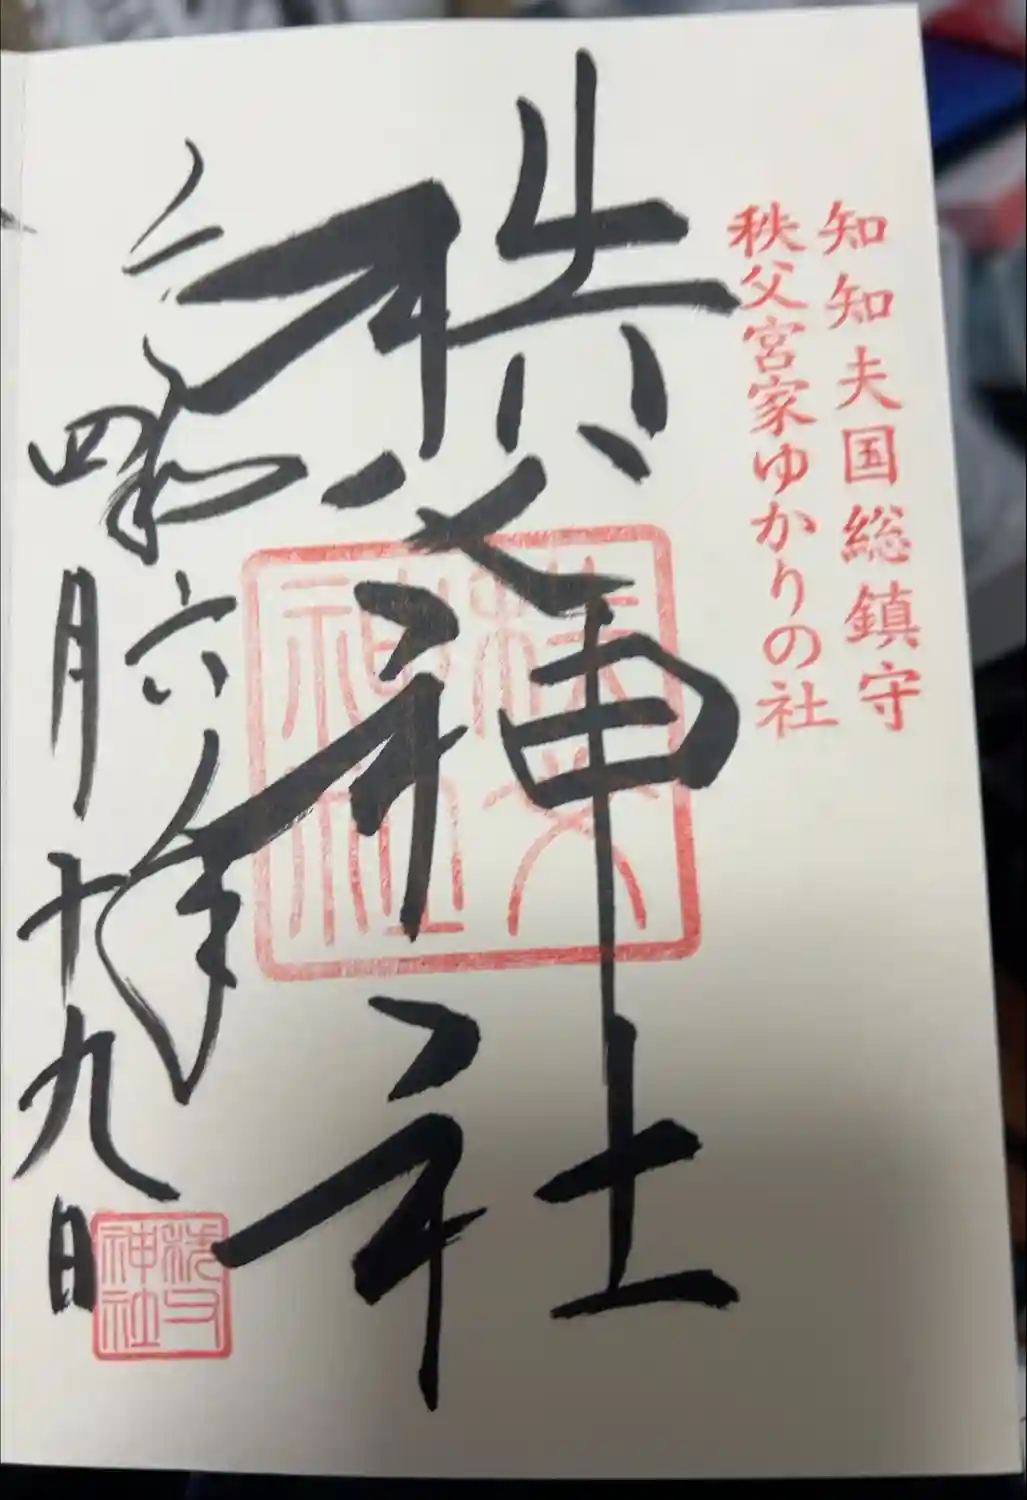 知知夫国総鎮守
秩父宮家ゆかりの社
秩父神社
秩父神社
令和六年
四月十九日
秩父神社